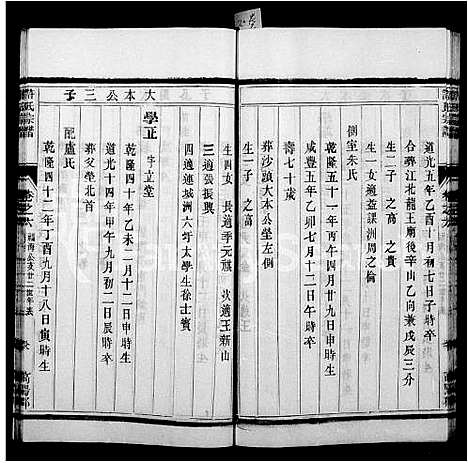 道光五年乙酉十月初七日子時卒
合葬江北龍王廟後辛山乙向兼戊辰三分
生二子 之高 之貴
生一女適盖課洲周之倫
側室朱氏
乾隆五十一年丙午四月廿九日申時生
咸豐五年乙卯七月十二日午時卒
壽七十歲
葬沙頭大本公塋左側
生一子 之高
大本公三子
生四女 長適季元禎 次適王新山
三適張振興
四適連城洲六圩太學生徐士賓
學正 字立堂
乾隆四十年乙未二月十二日申時生
道光十四年甲午九月初二日辰時卒
葬父塋北首
配盧氏
乾隆四十二年丁酉九月十八日寅時生
氏宗譜
卷之六